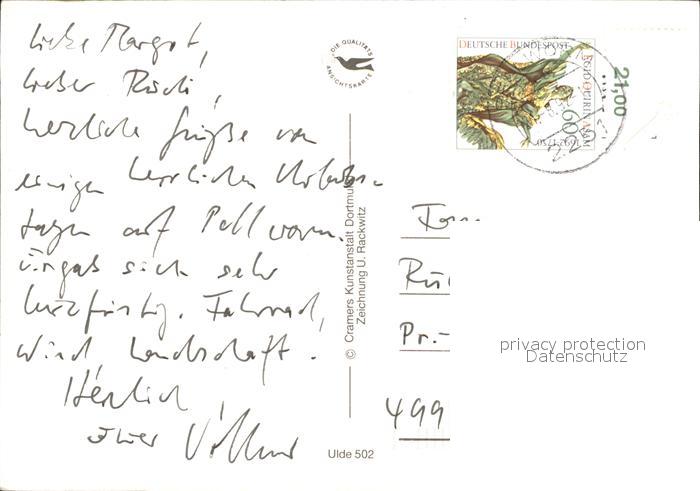 Liebe Margot,
lieber Rudi,
herzliche Grüße von
einigen herrlichen Urlaubs-
tagen auf Pellworm.
Ergab sich sehr
kurzfristig. Fahrrad,
Wind, Landschaft.
Herzlich,
Ihr Volkmar
DIE QUALITÄTS
ANSICHTSKARTE
© Cramers Kunstanstalt Dortmund
Zeichnung U. Rackwitz
Ulde 502
DEUTSCHE BUNDESPOST
EGID QUIRIN ASAM
1692-1750
60
21,00
499
privacy protection
Datenschutz